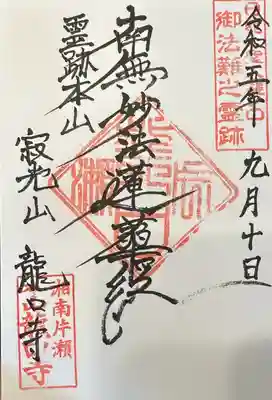 令和五年
九月十日
御法難之霊跡
南無妙法蓮華経
霊跡本山
寂光山
龍口寺
湘南片瀬
龍口寺